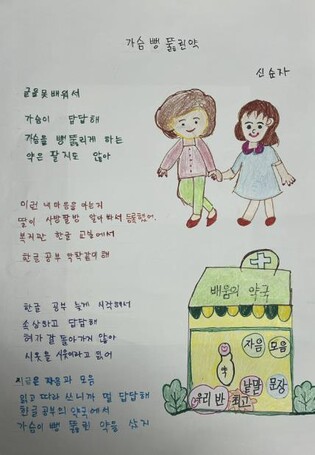 가슴 뻥 뚫린약
신순자
글을 못배워서
가슴이 답답해
가슴을 뻥뚫리게 하는
약은 팔지도 않아
이런 내마음을 아는지
딸이 사방팔방 알아봐서 등록했어.
복지관 한글 교실에서
한글 공부 딱딱같이 해
한글 공부 늦게 시작해서
속상하고 답답해
혀가 잘 돌아가지 않아
시옷을 시읏이라고 읽어
지금은 자음과 모음
읽고 따라 쓰니까 덜 답답해
한글공부의 약국에서
가슴이 뻥 뚫린 약을 샀지
배움의 약국
자음 모음
낱말 문장
우리 반 최고